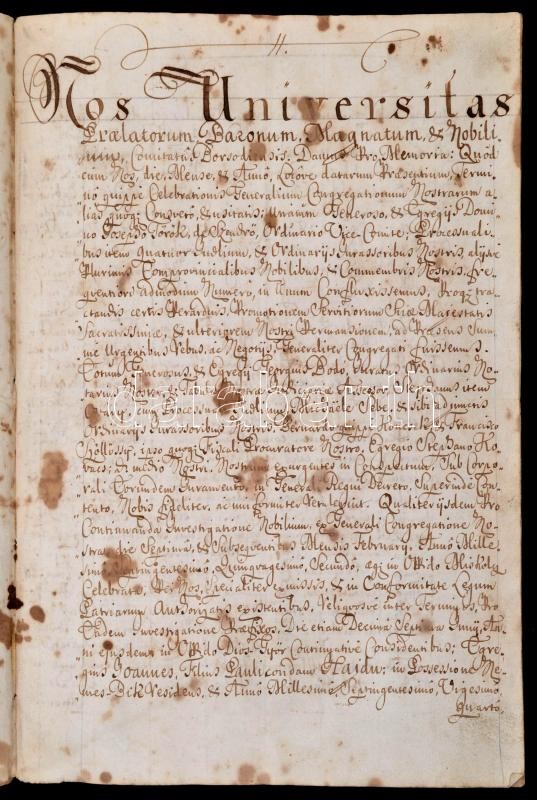 H.
Nos Universitas
Prælatorum, Baronum, Magnatum, & Nobili-
um, Comitatus Borsodiensis. Damus Pro Memoria: Quod
cum Nos, die, Mense, & Anno, datarum Præsentium, Termi-
no quippe Celebrationis Generalium Congregationum Nostrarum a-
lias quoque Consveto, & usitatis: unacum Generoso, & Egregijs Domi-
no Josepho Török, de Szendrö, Ordinario Vice Comite: Processuali-
bus item Quatuor Judlium, & Ordinarijs Jurassoribus Nostris, alijsque
Plurimis Comprovincialibus Nobilibus, & Commembris Nostris, fre-
quentiori admodum Numero, in Unum Confluxissemus, Proque tra-
ctandis certis Rerum, Promotionem Servitiorum Suæ Majestatis
Sacratissimæ, & ulteriorem Nostri Permansionem, ad Præsens Sum-
me Urgentibus Rebus, ac Negotijs, Generaliter Congregati fuissemus.
Totum Generosus, & Egregij Georgius Dobo, Juratus Ordinarius No-
tarius Noster, & Tabulæ Assessor, Stephanus item
Processus Judlium Michaele & sibi adjunctis
Ordinarijs Jurassoribus Bernardo Francisco
ipso quoque Fiscali Procuratore Nostro, Egregio Stephano Ko-
vacs: de medio Nostri, Nostrum exurgentes in Conspectum, Sub Corpo-
rali Eorundem Juramento, in Generali Regni Decreto, Superinde Con-
tento, Nobis fideliter, ac uniformiter Retulerunt. Qualiter ijsdem Pro
Continuanda Investigatione Nobilium, ex Generali Congregatione No-
stra, die Septima, & Subsequentibus Mensis February, Anno Mille-
simo Septingentesimo, Quinquagesimo, Secundo, aeque in Oppido Miskolcz
Celebrata, per Nos, Specialiter Emissis, & in Conformitate Legum
Patriarum Authorizatis existentibus, Terminos, Pro
Eadem Investigatione Præfixos, Die etiam Decima Septima Junij, An-
ni ejusdem in Oppido Dios Győr Continuative Considentibus: Egre-
gius Joannes, Filius Pauli condam Hajdu: in Possessione Ne-
mes-Bik Residens, & Anno Millesimo, Septingentesimo, Vigesimo,
Quarto,
darabanth